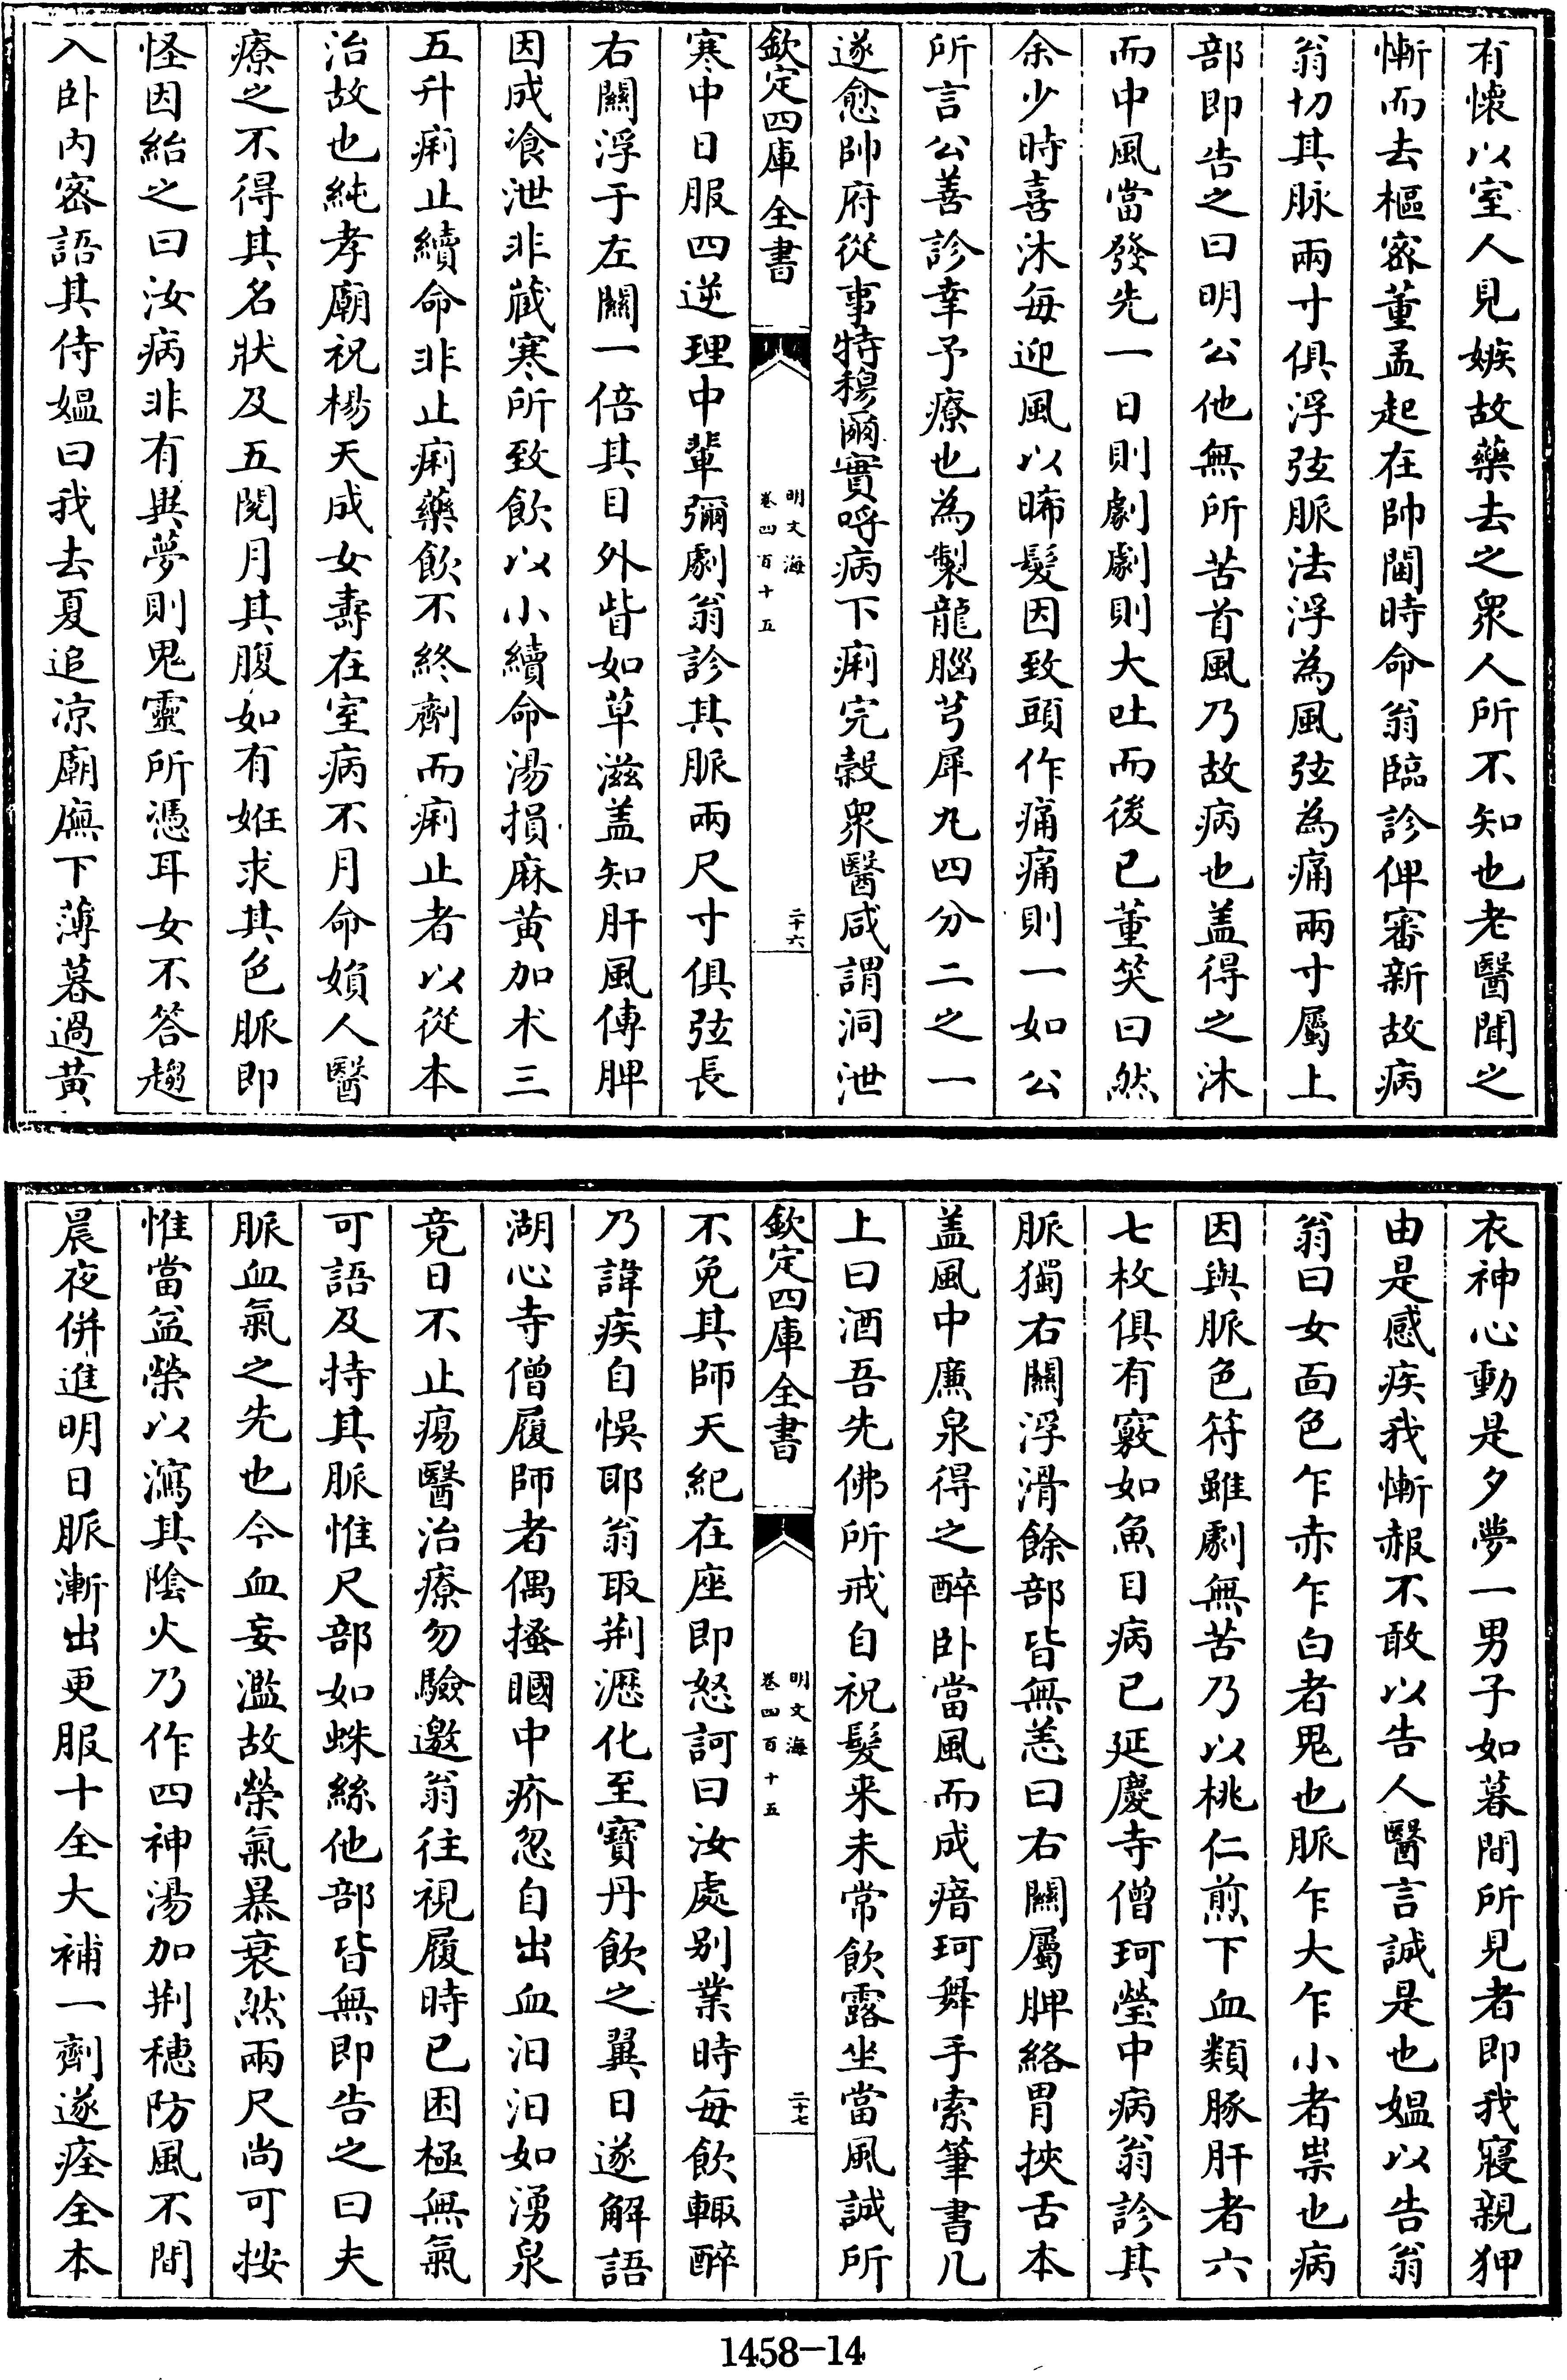 有懷以室人見嫉故藥去之衆人所不知也老醫聞之
慚而去樞密董孟起在帥閫時命翁臨診俾審新故病
翁切其脉兩寸俱浮弦脈法浮為風弦為痛兩寸屬上
部即告之曰明公他無所苦首風乃故病也盖得之沐
而中風當發先一日則劇劇則大吐而後已董笑曰然
余少時喜沐每迎風以晞髮因致頭作痛痛則一如公
所言公善診幸予療也為製龍腦芎犀丸四分二之一
遂愈帥府從事特穆爾實呼病下痢完穀衆醫咸謂洞泄
欽定四庫全書
明文海
卷四百十五
二十六
寒中日服四逆理中輩彌劇翁診其脈兩尺寸俱弦長
右關浮于左關一倍其目外眥如草滋盖知肝風傳脾
因成飡泄非蔵寒所致飲以小續命湯損麻黄加朮三
五升痢止續命非止痢藥飲不終劑而痢止者以從本
治故也純孝廟祝楊天成女夀在室病不月命媍人醫
療之不得其名狀及五閱月其腹如有姙求其色脈即
怪因紿之曰汝病非有異夢則鬼靈所憑耳女不答趨
入卧内密語其侍媪曰我去夏追凉廟廡下薄暮過黄
衣神心動是夕夢一男子如暮間所見者即我寢親狎
由是感疾我慚赧不敢以告人醫言誠是也媪以告翁
翁曰女面色乍赤乍白者鬼也脈乍大乍小者祟也病
因與脈色符雖劇無苦乃以桃仁煎下血類豚肝者六
七枚俱有竅如魚目病已延慶寺僧珂瑩中病翁診其
脈獨右關浮滑餘部皆無恙曰右關屬脾絡胃挾舌本
盖風中廉泉得之醉卧當風而成瘖珂舞手索筆書几
上曰酒吾先佛所戒自祝髮来未常飲露坐當風誠所
欽定四庫全書
明文海
卷四百十五
二十七
不免其師天紀在座即怒訶曰汝處别業時每飲輙醉
乃諱疾自悞耶翁取荆瀝化至寶丹飲之翼日遂解語
湖心寺僧履師者偶搔膕中疥忽自出血汩汩如湧泉
竟日不止瘍醫治療勿驗邀翁往視履時已困極無氣
可語及持其脈惟尺部如蛛絲他部皆無即告之曰夫
脈血氣之先也今血妄濫故榮氣暴衰然兩尺尚可按
惟當益榮以瀉其陰火乃作四神湯加荆穂防風不間
晨夜併進明日脈漸出更服十全大補一劑遂痊全本
1458-14